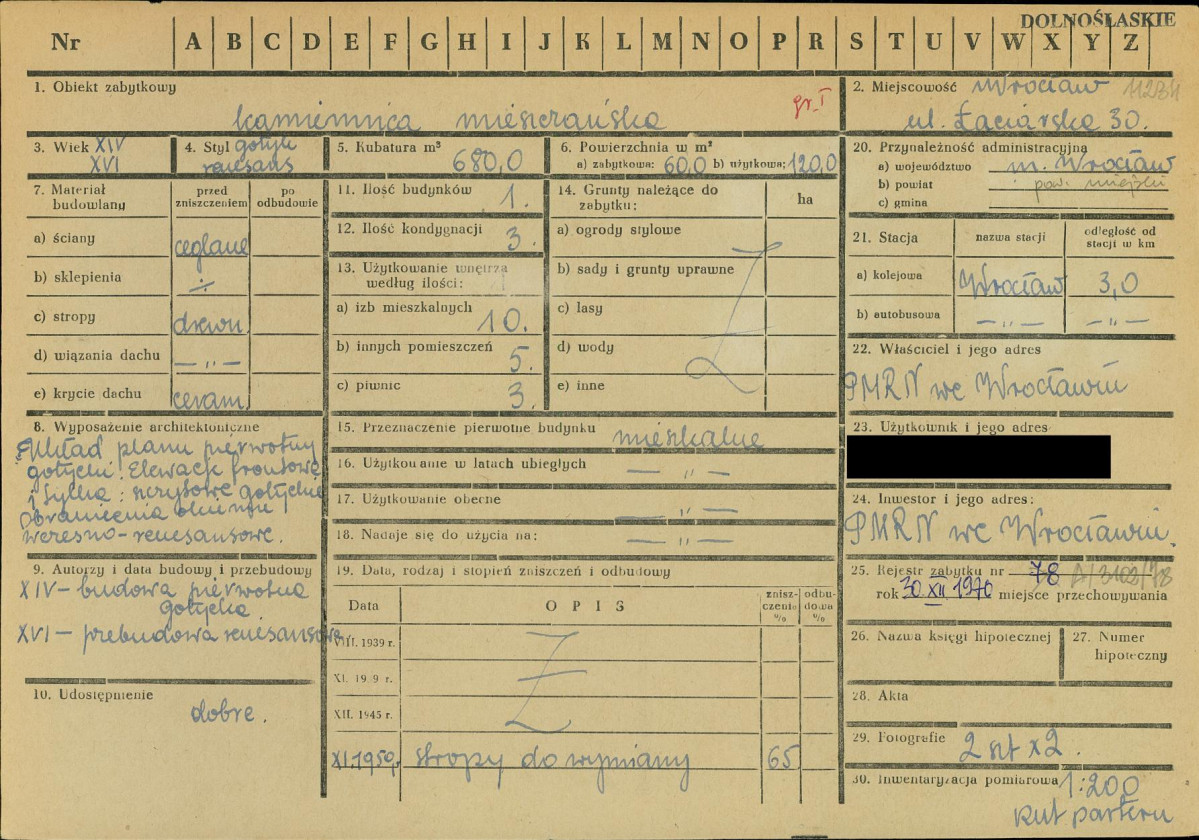 DOLNOŚLĄSKIE
Nr A B C D E F G H I J K L M N O P R S T U V W X Y Z
1. Obiekt zabytkowy
gr. I
kamienica mieszczańska
2. Miejscowość Wrocław
ul. Łaciarska 30.
3. Wiek XIV
XVI
4. Styl gotyk
renesans
5. Kubatura m³ 680,0
6. Powierzchnia w m²
a) zabytkowa: 60,0 b) użytkowa: 120,0
20. Przynależność administracyjna
a) województwo m. Wrocław
b) powiat pow. miejski
c) gmina
7. Materiał budowlany
przed zniszczeniem
po odbudowie
a) ściany ceglane
b) sklepienia ÷
c) stropy drewn.
d) wiązania dachu — „ —
e) krycie dachu ceram.
11. Ilość budynków 1.
12. Ilość kondygnacji 3.
13. Użytkowanie wnętrza
według ilości:
a) izb mieszkalnych 10.
b) innych pomieszczeń 5.
c) piwnic 3.
14. Grunty należące do
zabytku:
ha
a) ogrody stylowe
b) sady i grunty uprawne
c) lasy
d) wody
e) inne
21. Stacja
nazwa stacji
odległość od
stacji w km
a) kolejowa Wrocław 3,0
b) autobusowa — „ — — „ —
22. Właściciel i jego adres
PMRN we Wrocławiu
8. Wyposażenie architektoniczne
Układ planu pierwotny
gotycki. Elewacje frontowe
i tylna: gotyckie
obramienia okienne i
wczesno-renesansowe.
15. Przeznaczenie pierwotne budynku mieszkalne
16. Użytkowanie w latach ubiegłych — „ —
17. Użytkowanie obecne — „ —
18. Nadaje się do użycia na: — „ —
23. Użytkownik i jego adres
24. Inwestor i jego adres:
PMRN we Wrocławiu.
9. Autorzy i data budowy i przebudowy
XIV – budowa pierwotna
gotycka
XVI – przebudowa renesansowa
10. Udostępnienie
dobre.
19. Data, rodzaj i stopień zniszczeń i odbudowy
Data OPIS znisz-
czenie
% odbu-
dowa
%
VIII. 1939 r.
XI. 19 9 r.
XII. 1945 r.
XI.1959r. stropy do wymiany 65
25. Rejestr zabytku nr 78 A/3103/78
rok 30 XII 1970 miejsce przechowywania
26. Nazwa księgi hipotecznej
27. Numer
hipoteczny
28. Akta
29. Fotografie 2 szt x 2.
30. Inwentaryzacja pomiarowa 1:200
rzut parteru